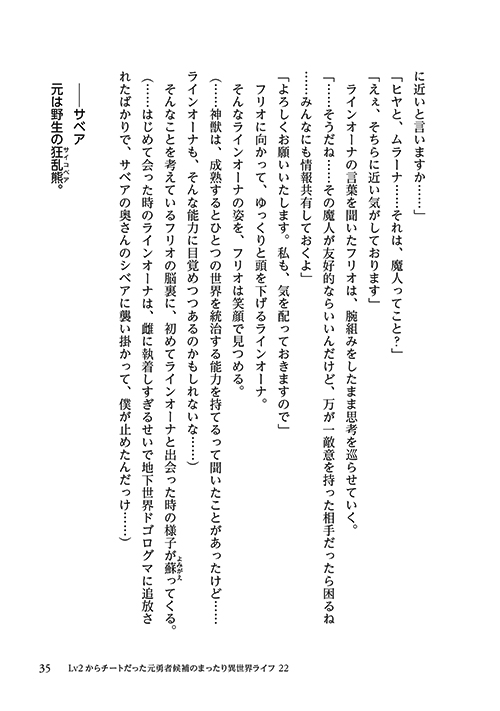 に近いと言いますか……」
「ヒヤと、ムラーナ……それは、魔人ってこと？」
「えぇ、そちらに近い気がしております」
ラインオーナの言葉を聞いたフリオは、腕組みをしたまま思考を巡らせていく。
「……そうだね……その魔人が友好的ならいいんだけど、万が一敵意を持った相手だったら困るね
……みんなにも情報共有しておくよ」
「よろしくお願いいたします。私も、気を配っておきますので」
フリオに向かって、ゆっくりと頭を下げるラインオーナ。
そんなラインオーナの姿を、フリオは笑顔で見つめる。
（……神獣は、成熟するとひとつの世界を統治する能力を持てるって聞いたことがあったけど……
ラインオーナも、そんな能力に目覚めつつあるのかもしれないな……）
そんなことを考えているフリオの脳裏に、初めてラインオーナと出会った時の様子が蘇ってくる。
よみがえ
（……はじめて会った時のラインオーナは、雌に執着しすぎるせいで地下世界ドゴログマに追放さ
れたばかりで、サベアの奥さんのシベアに襲い掛かって、僕が止めたんだっけ……）
――サベア
元は野生の狂乱熊。
サイコベア
35 Lv2からチートだった元勇者候補のまったり異世界ライフ 22